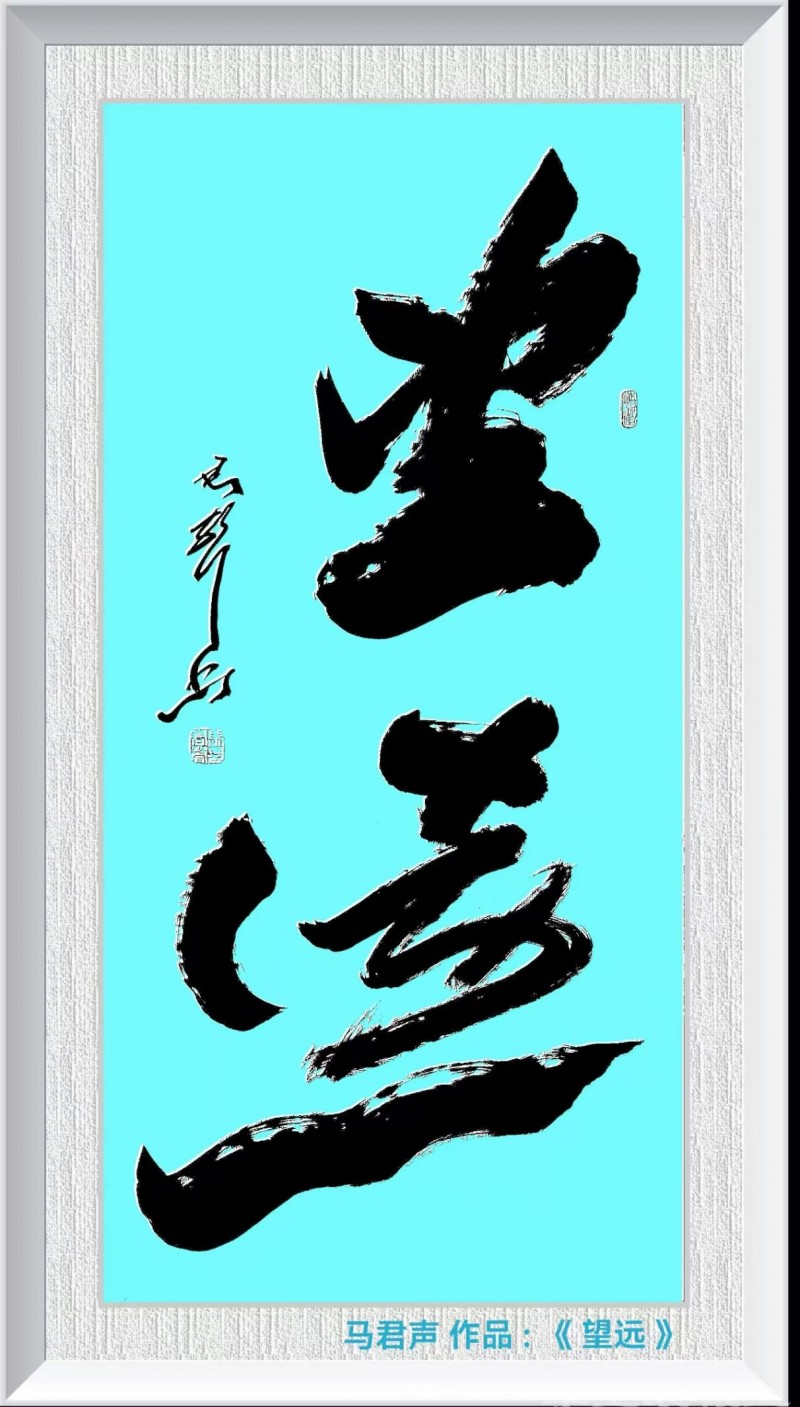 望
远
马君声 作品：《 望远 》